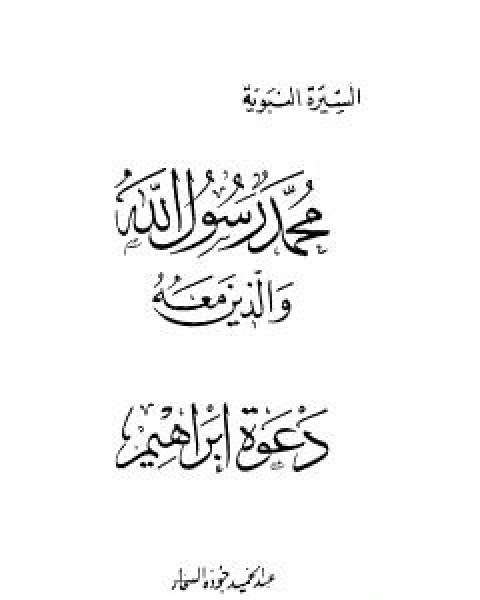 السيرة النبوية
محمد رسول الله
والذين معه
دعوة إبراهيم
عبد الحميد جودة السحار